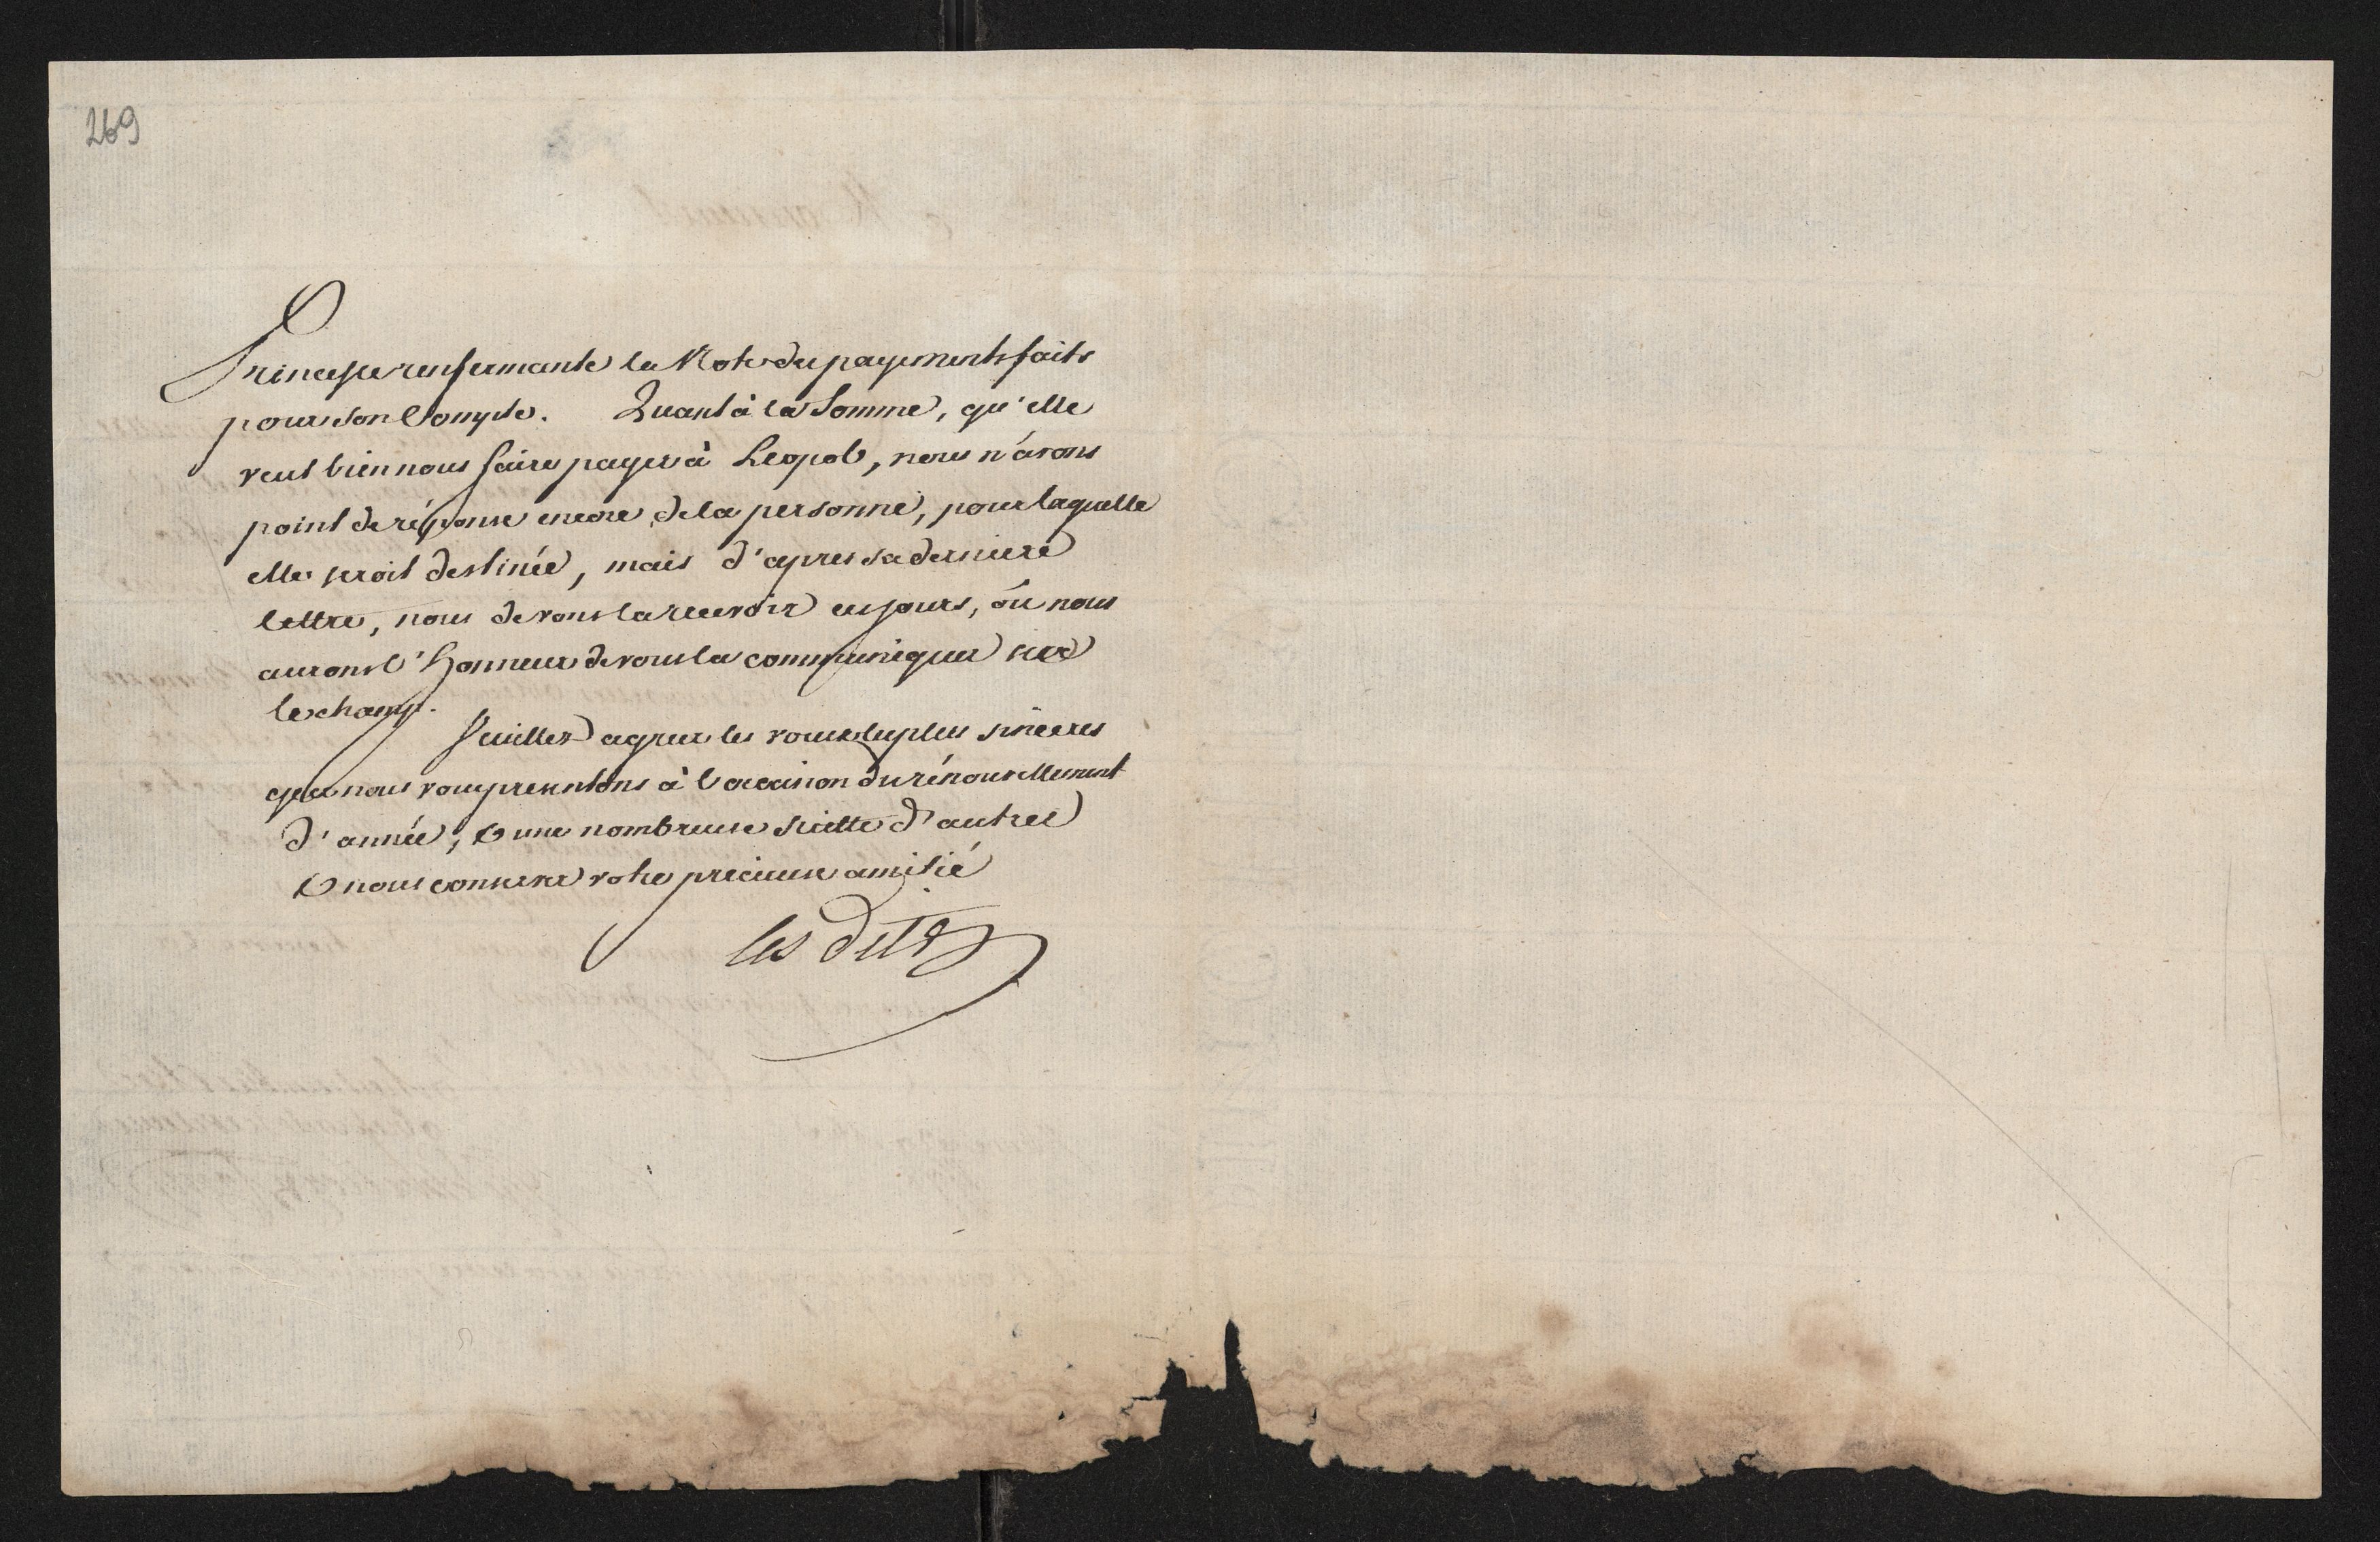 269
Princesse renfermante la Note des payements faits
pour son Compte. Quant à la Somme, qu'elle
veut bien nous faire payer à Leopol, nous n'avons
point de réponse encore de la personne, pour laquelle
elle seroit destinée, mais d'apres sa derniere
lettre, nous devons la recevoir ces jours, où nous
aurons l'Honneur de vous la communiquer sur
le champ.
Veuillez agreer les voeux les plus sinceres
que nous vous presentons à l'occasion du rénouvellement
d'année, & une nombreuse suitte d'autres
& nous conserver votre precieuse amitié
les dits